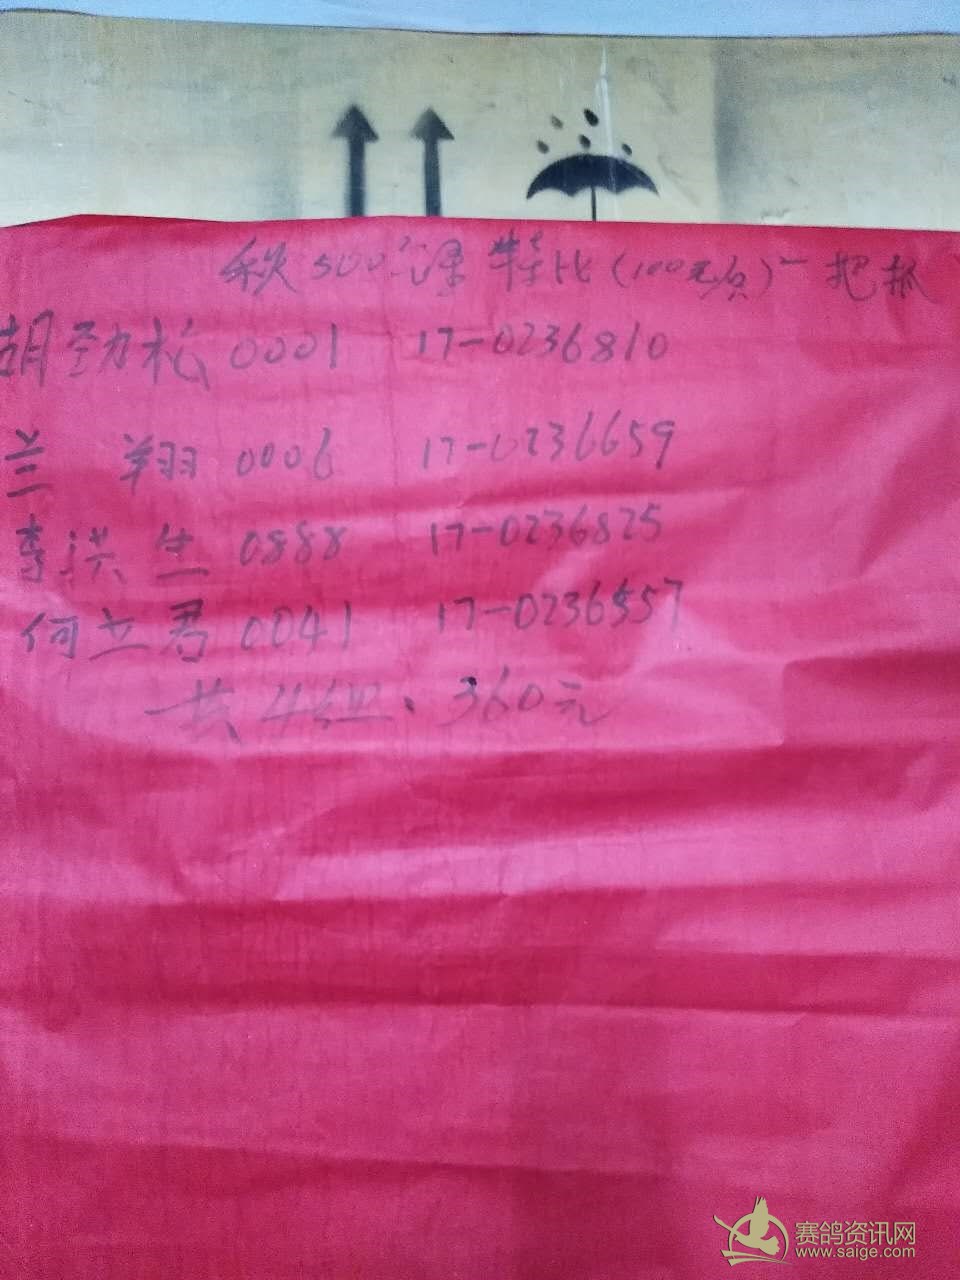 秋500公里特比(100元负)一把抓
胡劲松 0001 17-0236810
兰 翔 0006 17-0236659
李洪生 0888 17-0236825
何立君 0041 17-0236557
共4组、360元
赛鸽资讯网
www.saige.com